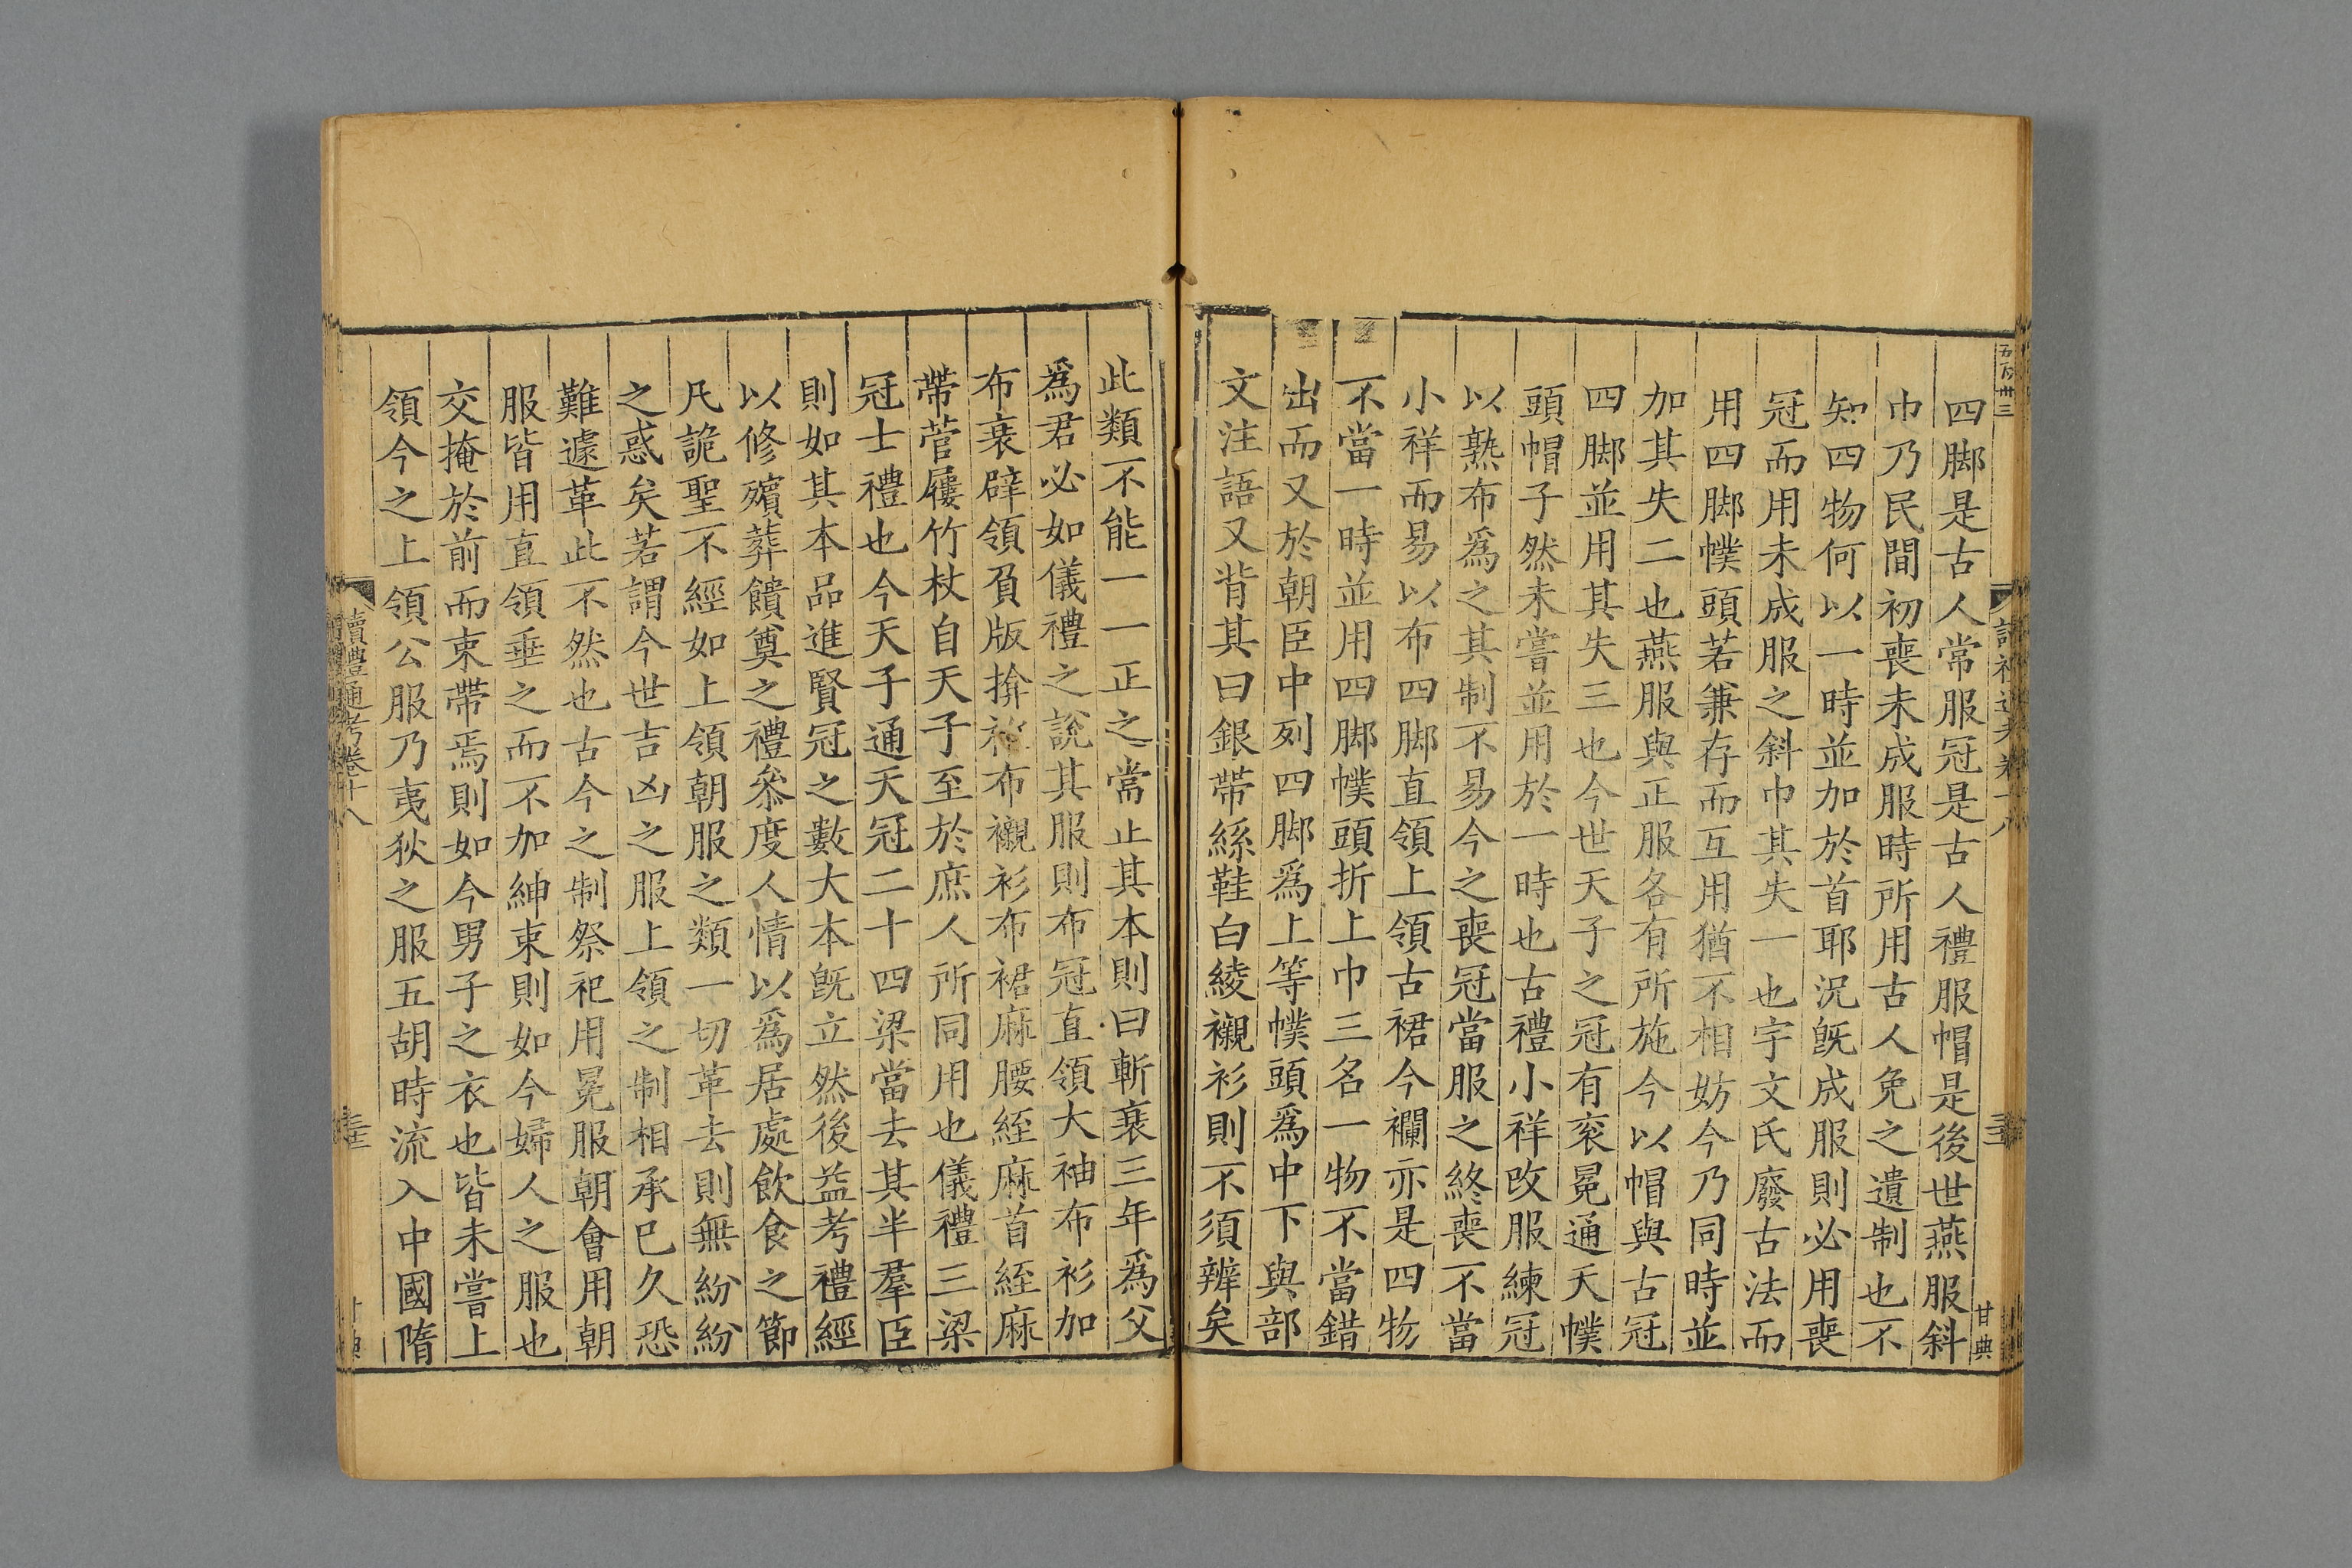 五百卅三
四脚是古人常服冠是古人禮服帽是後世燕服斜
巾乃民間初喪未成服時所用古人免之遺制也不
知四物何以一時並加於首耶況旣成服則必用喪
冠而用未成服之斜巾其失一也宇文氏廢古法而
用四脚幞頭若兼存而互用猶不相妨今乃同時並
加其失二也燕服與正服各有所施今以帽與古冠
四脚並用其失三也今世天子之冠有衮冕通天幞
頭帽子然未嘗並用於一時也古禮小祥改服練冠
以熟布爲之其制不易今之喪冠當服之終喪不當
小祥而易以布四脚直領上領古裙今襴亦是四物
不當一時並用四脚幞頭折上巾三名一物不當錯
出而又於朝臣中列四脚爲上等幞頭爲中下與部
文注語又背其曰銀帶絲鞋白綾襯衫則不須辨矣
甘典
此類不能一一正之當止其本則曰斬衰三年爲父
爲君必如儀禮之說其服則布冠直領大袖布衫加
布衰辟領負版揜衽布襯衫布裙麻腰絰麻首絰麻
帶菅屨竹杖自天子至於庶人所同用也儀禮三梁
冠士禮也今天子通天冠二十四梁當去其半羣臣
則如其本品進賢冠之數大本旣立然後益考禮經
以修殯葬饋奠之禮叅度人情以爲居處飲食之節
凡詭聖不經如上領朝服之類一切革去則無紛紛
之惑矣若謂今世吉凶之服上領之制相承已久恐
難遽革此不然也古今之制祭祀用冕服朝會用朝
服皆用直領垂之而不加紳束則如今婦人之服也
交掩於前而束帶焉則如今男子之衣也皆未嘗上
領今之上領公服乃夷狄之服五胡時流入中國隋
讀禮通考卷十八